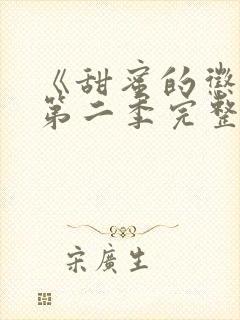 《甜蜜的懲
第二季完整
宋廣生